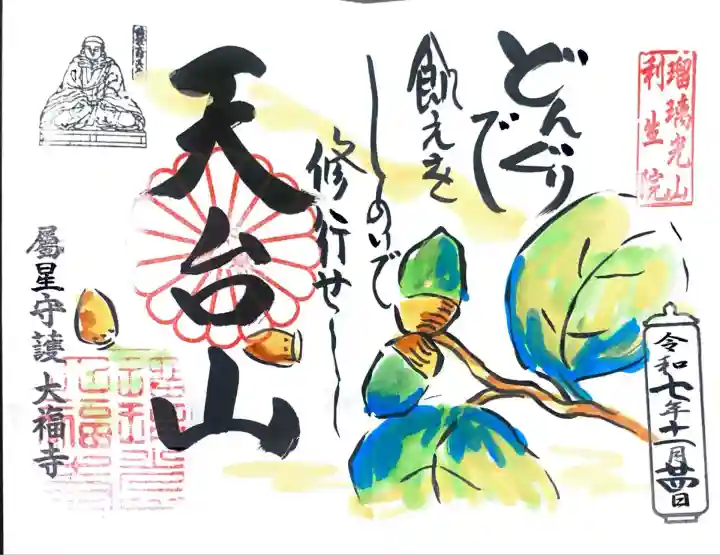 瑠璃光山
利生院
どんぐり
で
飢えを
しのいで
修行せし
天台山
屬星守護 大福寺
令和七年十一月廿四日